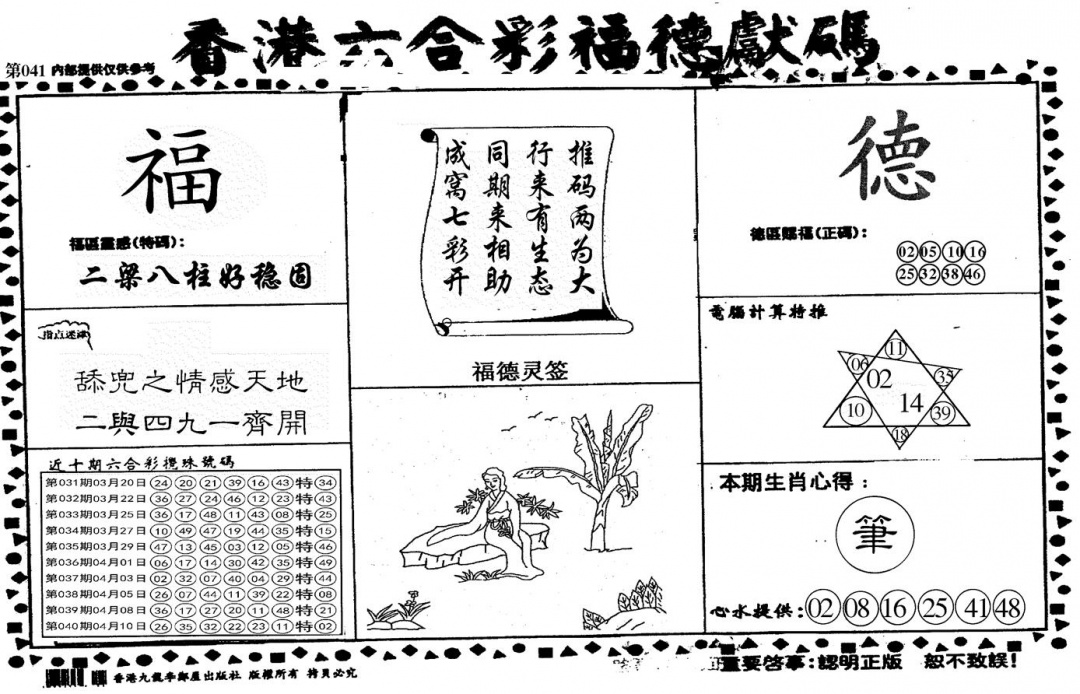 香港六合彩福德獻碼
第041 内部提供仅供参考
福
福區靈感(特碼):
二梁八柱好稳固
指点迷津
舔兜之情感天地
二與四九一齊開
近十期六合彩攪珠號碼
第031期03月20日 24 20 21 39 16 43 特 34
第032期03月22日 36 27 24 46 12 23 特 43
第033期03月25日 36 17 48 11 43 08 特 25
第034期03月27日 10 49 47 19 44 35 特 15
第035期03月29日 47 13 45 03 12 05 特 46
第036期04月01日 06 17 14 30 42 35 特 49
第037期04月03日 02 32 07 40 04 29 特 44
第038期04月05日 26 07 44 11 39 22 特 08
第039期04月08日 36 17 27 20 11 48 特 21
第040期04月10日 26 35 32 22 23 11 特 02
推码两为大
行来有生态
同期来相助
成窝七彩开
福德灵签
德
德區賜福(正碼):
02 05 10 16
25 32 38 46
電腦計算特推
11
06 02 35
10 14 39
18
本期生肖心得:
筆
心水提供: 02 08 16 25 41 48
香港九龍李鄭屋出版社 版權所有 拷貝必究
重要啓事:認明正版 恕不致誤!